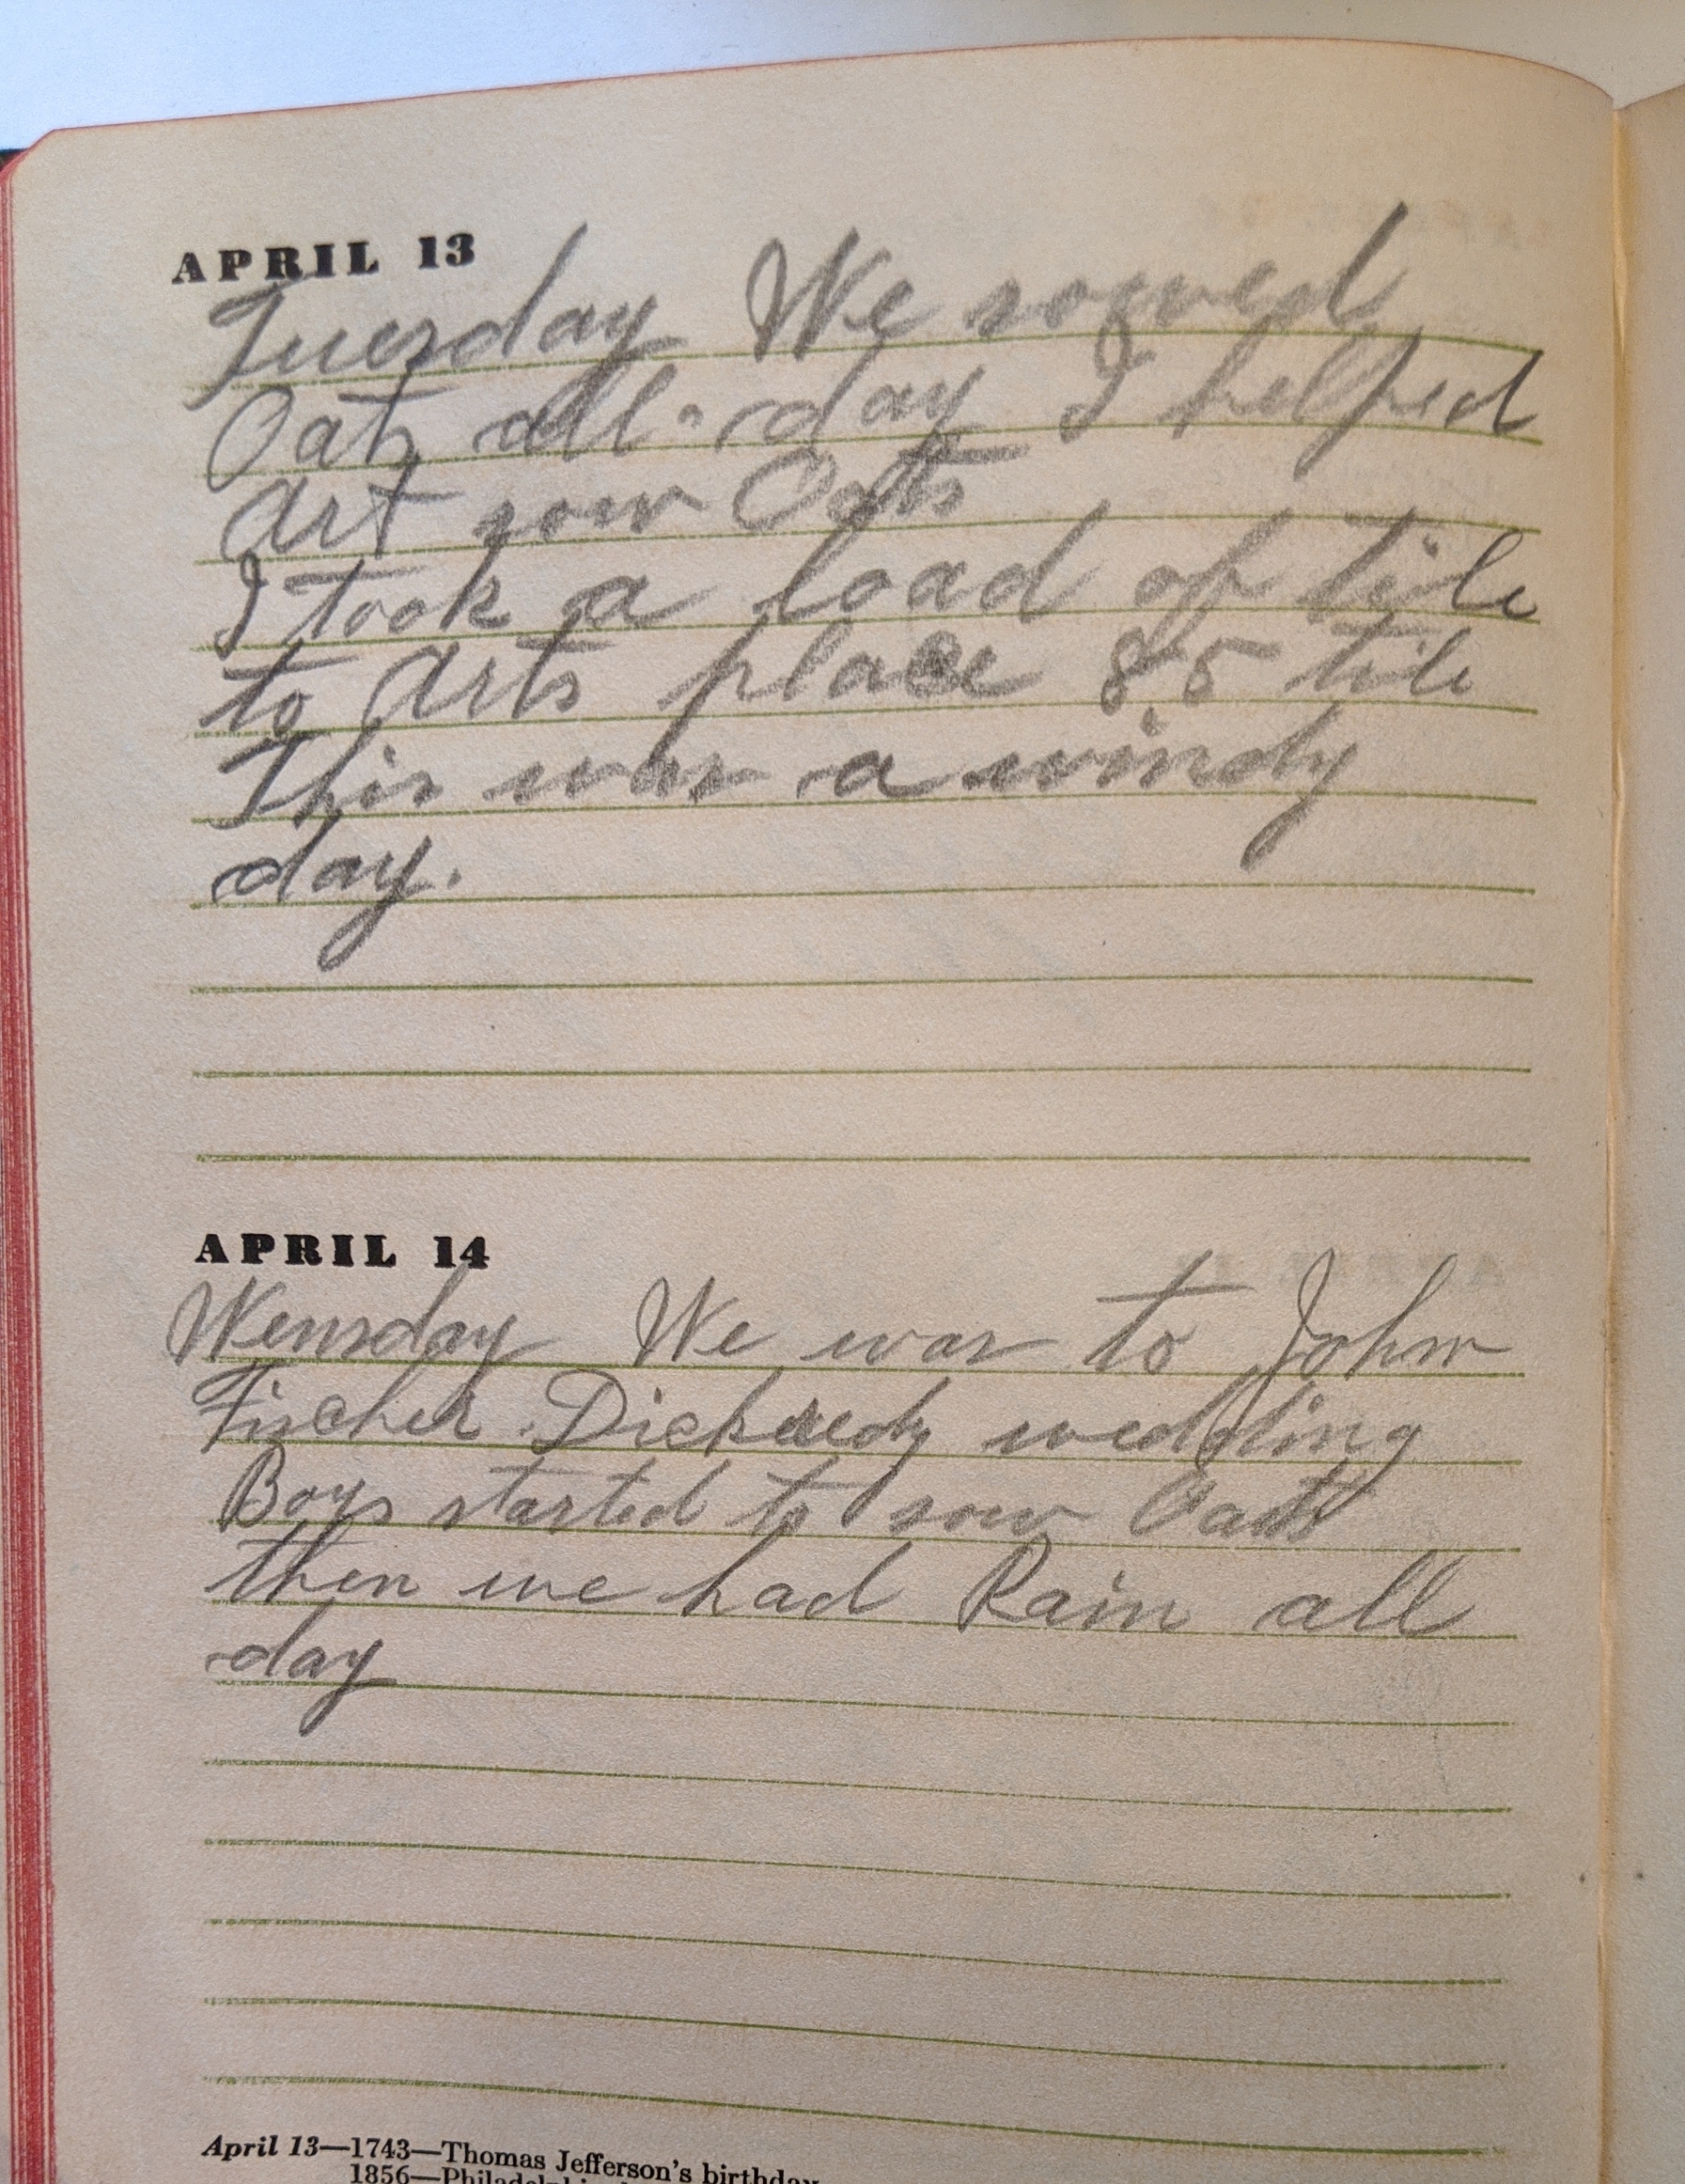 APRIL 13
Tuesday We sowed
Oats all day I helped
Art sow Oats
I took a load of tile
to Arts place 85 tile
This was a windy
day.
APRIL 14
Wensday We was to John
Fischer wedding
Boys started to sow Oats
then we had Rain all
day
April 13—1743—Thomas Jefferson's birthday